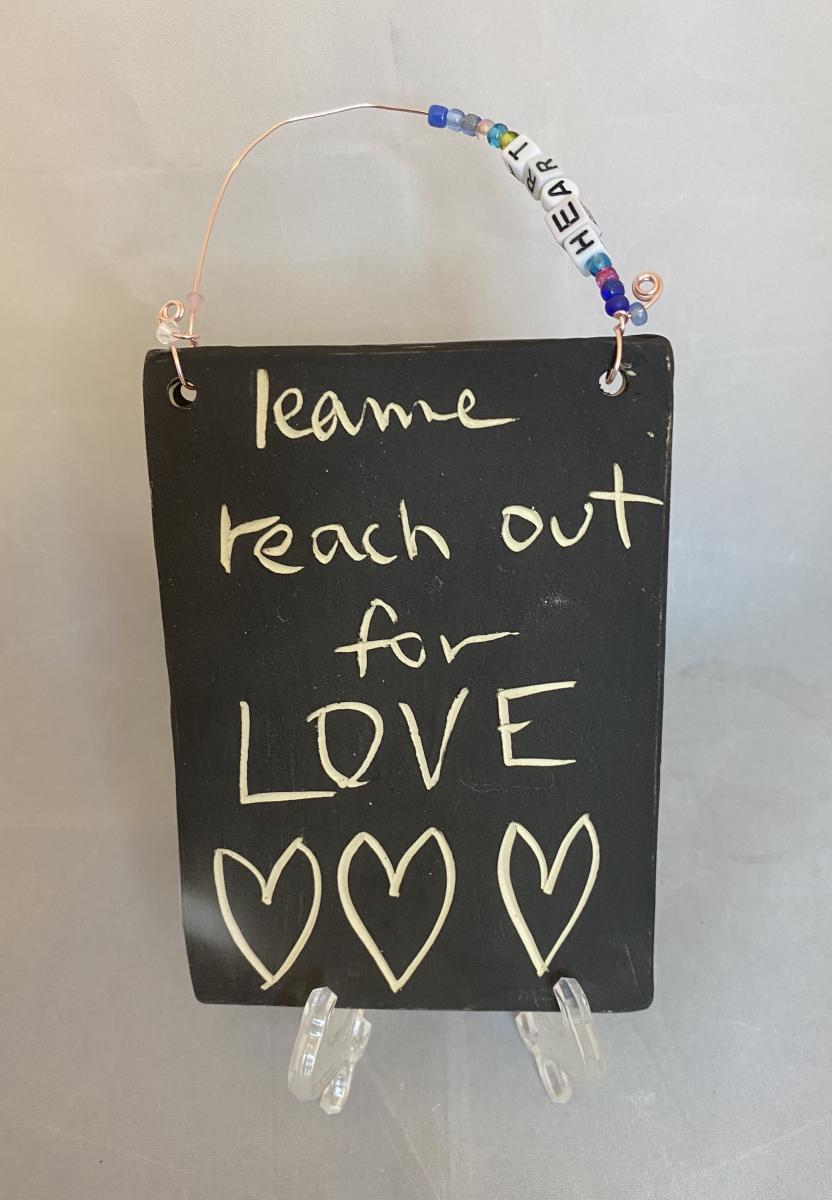 HEART
leame
reach out
for
LOVE